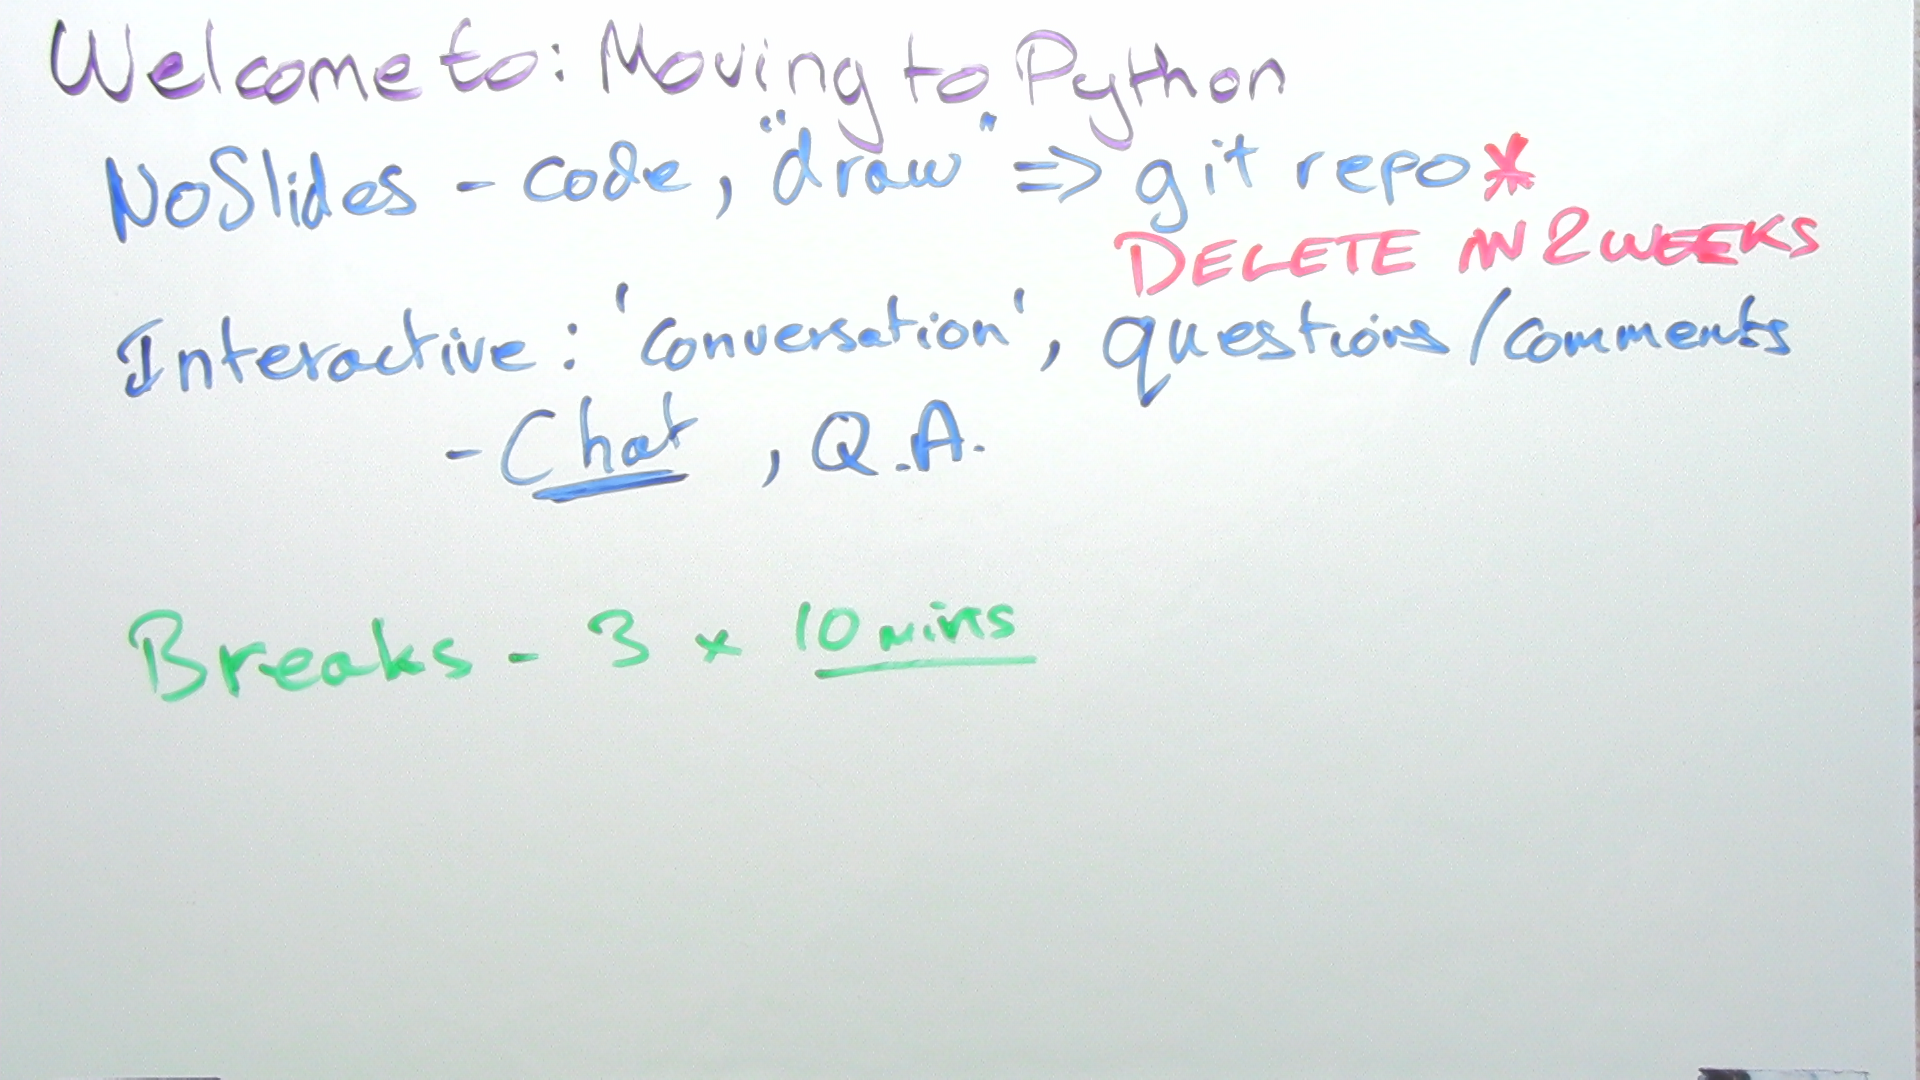 Welcome to: Moving to Python
No Slides - code, "draw" => git repo *
DELETE IN 2 WEEKS
Interactive: 'conversation', questions/comments
- Chat, Q.A.
Breaks - 3 x 10 mins